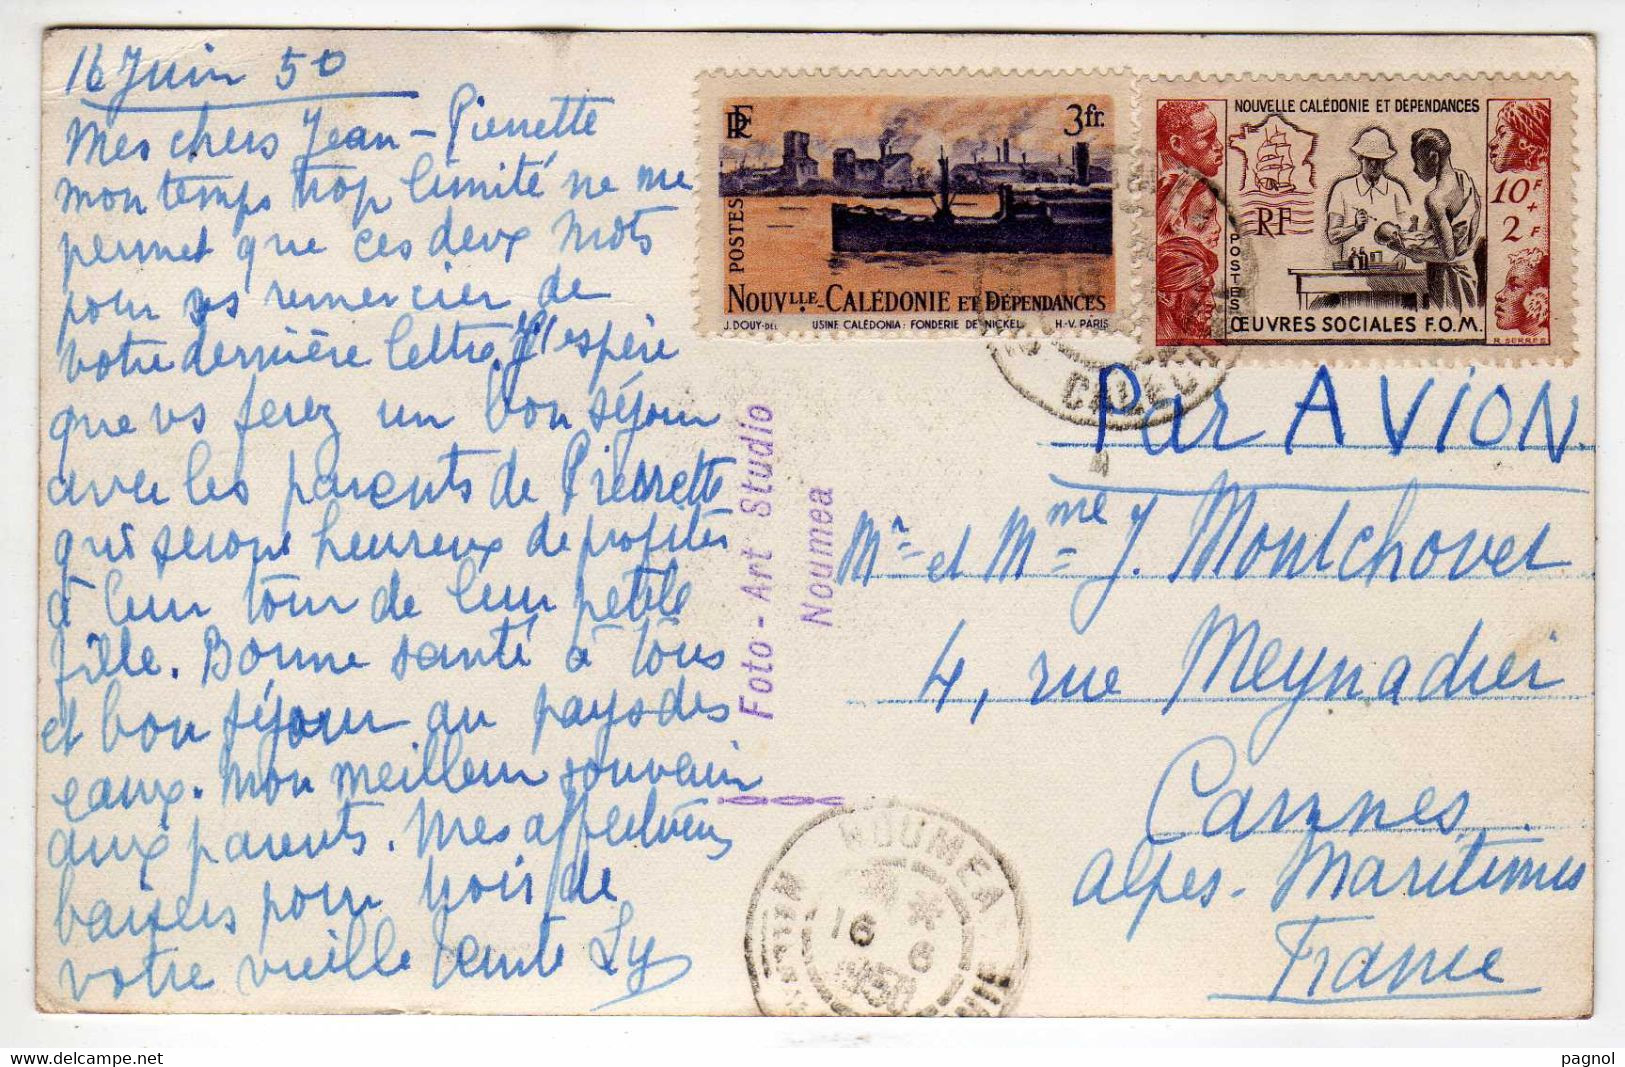 16 Juin 50
Mes chers Jean-Pierrette
mon temps trop limité ne me
permet que ces deux mots
pour vs remercier de
votre dernière lettre. J'espère
que vs ferez un bon séjour
avec les parents de Pierrette
qui seront heureux de profiter
à leur tour de leur petite
fille. Bonne santé à tous
et bon séjour au pays des
eaux. Mon meilleur souvenir
aux parents. Mes affectueux
baisers pour vois de
votre vieille tante Ly
Foto - Art Studio
Noumea
RF
3fr.
POSTES
NOUVLLE-CALÉDONIE ET DÉPENDANCES
J. DOUY-DEL. USINE CALÉDONIA: FONDERIE DE NICKEL H-V. PARIS
NOUVELLE CALÉDONIE ET DÉPENDANCES
10F + 2F
RF
POSTES
ŒUVRES SOCIALES F.O.M.
R. SERRES
Par AVION.
Mr et Mme J. Montchovet
4, rue Meynadier
Cannes.
Alpes-Maritimes
France
NOUMEA
16 6
1950
pagnol
www.delcampe.net